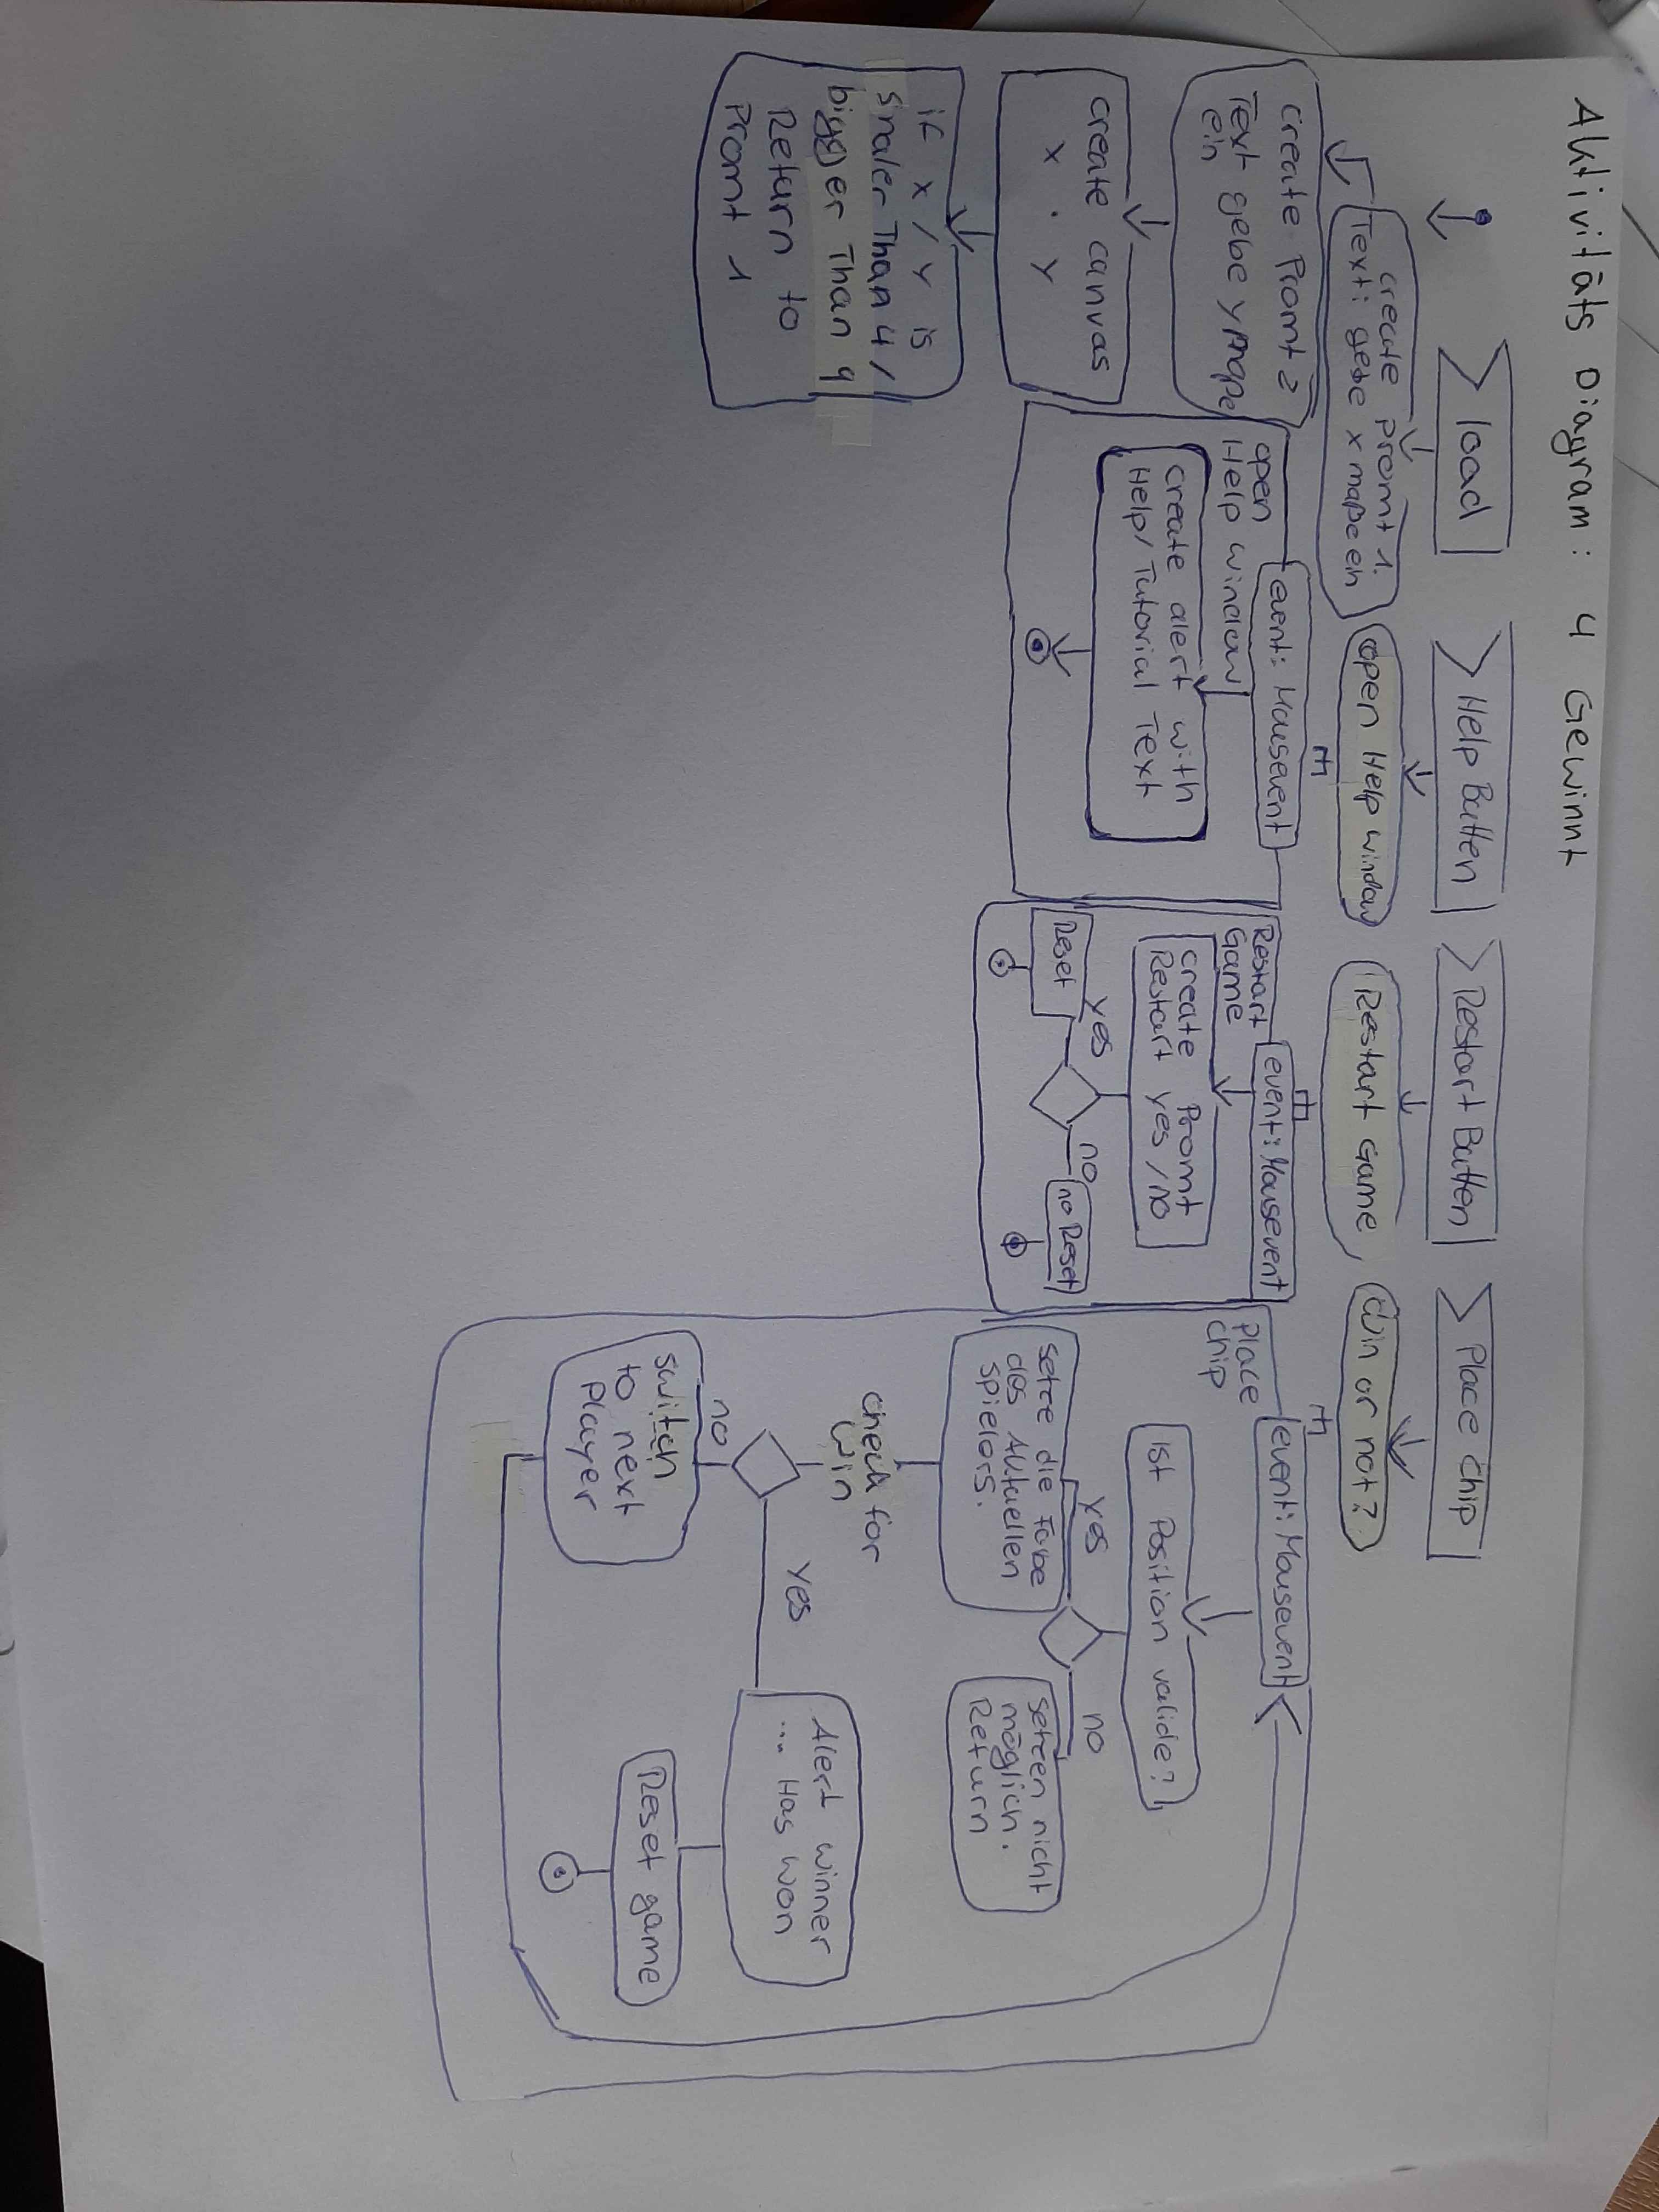 Aktivitäts Diagram: 4 Gewinnt
load
create Promt 1:
Text: gebe x maße ein
create Promt 2
Text gebe y maße
ein
create canvas
x · y
if x / y is
smaler Than 4 /
bigger Than 9
Return to
Promt 1
Help Button
open Help window
event: Mausevent
open
Help window
create alert with
Help/Tutorial Text
Restart Button
Restart Game
event: Mausevent
Restart
Game
create Promt
Restart yes / no
yes
no
Reset
no Reset
Place Chip
Win or not?
event: Mausevent
Place
chip
Ist Position valide?
yes
no
setze die Farbe
des Aktuellen
spielers.
setzen nicht
möglich.
Return
check for
win
yes
no
switch
to next
Player
Alert winner
... Has won
Reset game